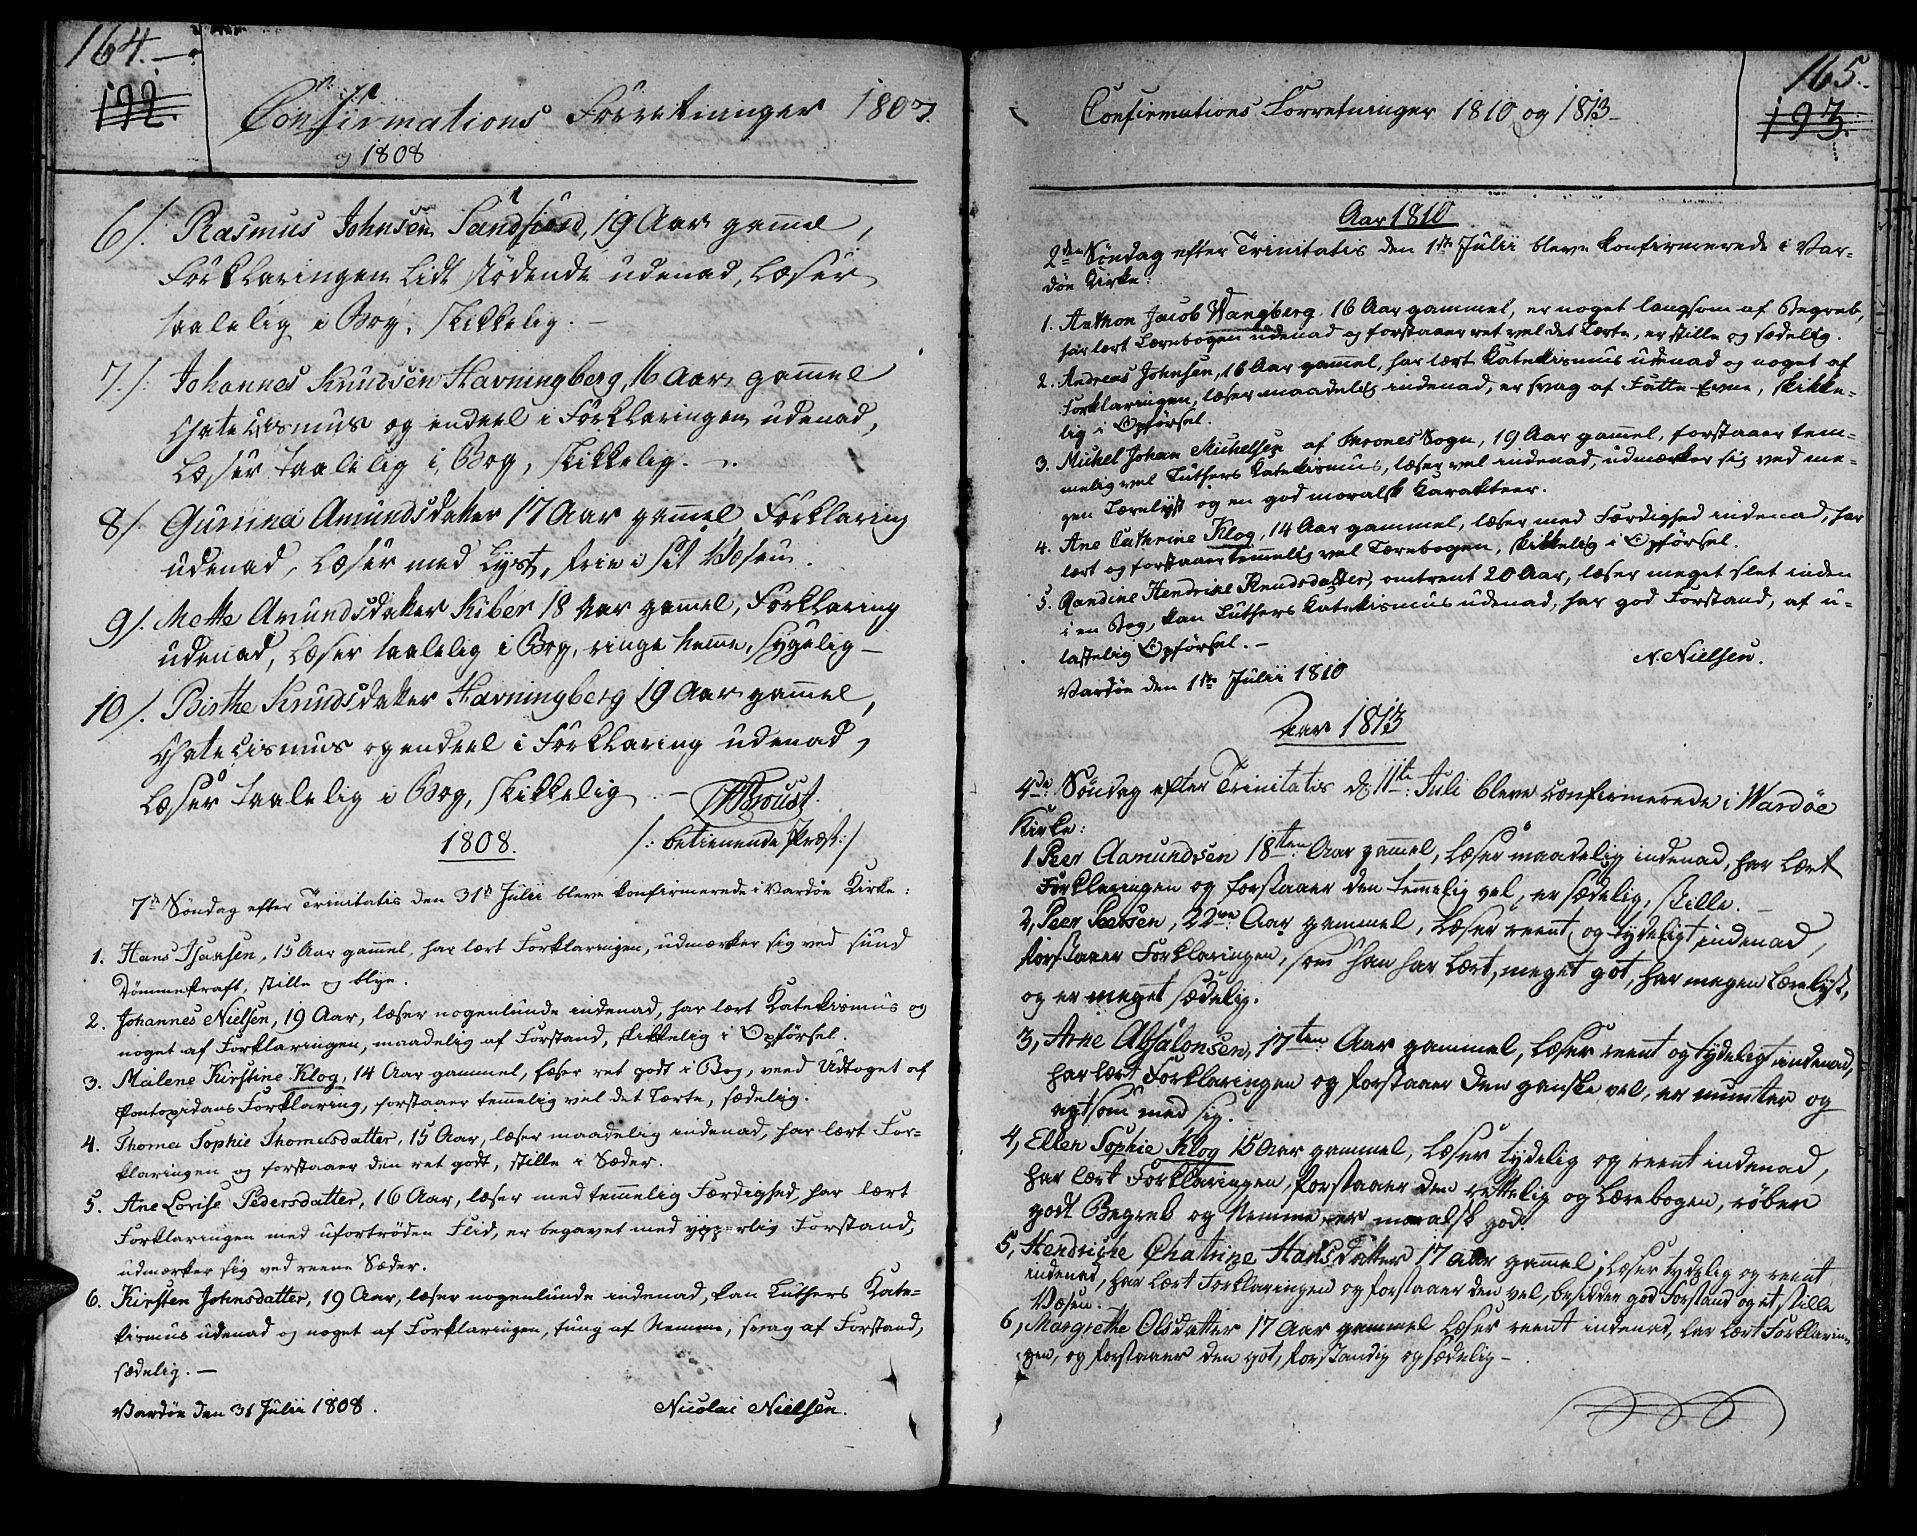 164.
192.
Confirmations Forretninger 1807.
og 1808
6/. Rasmus Johnsen Sandfiord, 19 Aar gamel,
Forklaringen Lidt stödende udenad, Læser
taalelig i Bog, Skikkelig. –
7./. Johannes Knudsen Havningberg, 16 Aar gammel
Chatecismus og endeel i Forklaringen udenad,
Læser taalelig i Bog, skikkelig. –
8/. Gunina Amundsdatter 17 Aar gamel Forklaring
udenad, Læser med Lyst, frie i sit Væsen.
9/. Mette Amundsdatter Kiber 18 Aar gamel, Forklaring
udenad, Læser taalelig i Bog, ringe Nemme, sygelig –
10/. Birthe Knudsdatter Havningberg 19 Aar gamel,
Chatecismus og endeel i Forklaring udenad,
Læser taalelig i Bog, skikkelig –
/: betienende Præst :/
1808.
7de Söndag efter Trinitatis den 31te Julii bleve konfirmerede i Vardöe Kirke:
1. Hans Isaksen, 15 Aar gammel, har lært Forklaringen, udmærker sig ved sund
Dömmekraft, stille og blye.
2. Johannes Nielsen, 19 Aar, læser nogenlunde indenad, har lært Katekismus og
noget af Forklaringen, maadelig af Forstand, skikkelig i Opförsel.
3. Malene Kirstine Klog, 14 Aar gammel, læser ret godt i Bog, veed Udtoget af
Pontopidans Forklaring, forstaaer temmelig vel det Lærte, sædelig.
4. Thomea Sophie Thomesdatter, 15 Aar, læser maadelig indenad, har lært For=
klaringen og forstaaer den ret godt, stille i Sæder.
5. Ane Lovise Pedersdatter, 16 Aar, læser med temmelig Færdighed, har lært
Forklaringen med ufortröden Flid, er begavet med ypperlig Forstand,
udmærker sig ved reene Sæder.
6. Kirsten Johnsdatter, 19 Aar, læser nogenlunde indenad, kan Luthers Kate=
kismus udenad og noget af Forklaringen, tung af Nemme, svag af Forstand,
sædelig. –
Vardöe den 31 Julii 1808.
Nicolai Nielsen.
165.
193.
Confirmations Forretninger 1810 og 1813
Aar 1810
2den Söndag efter Trinitatis den 1ste Julii bleve konfirmerede i Var=
döe Kirke:
1. Anthon Jacob Wangberg 16 Aar gammel, er noget langsom af Begreb,
har lært Lærebogen udenad og forstaaer ret vel det Lærte, er stille og sædelig.
2. Andreas Johnsen, 16 Aar gammel, har lært Katekismus udenad og noget af
Forklaringen, læser maadelig indenad, er svag af Fatte-Evne, skikke=
lig i Opförsel.
3. Michel Johan Michelsen af Sogn, 19 Aar gammel, forstaaer tem=
melig vel Luthers Katekismus, læser vel indenad, udmærker sig ved me=
gen Lærelyst og en god moralsk Karakteer.
4. Ane Cathrine Klog, 14 Aar gammel, læser med Færdighed indenad, har
lært og forstaaer temmelig vel Lærebogen, skikkelig i Opförsel.
5. Randine Hendrine Knudsdatter, omtrent 20 Aar, læser meget slet inden
i en Bog, kan Luthers Katekismus udenad, har god Forstand, af u=
lastelig Opförsel. –
N. Nielsen.
Vardöe den 1ste Julii 1810
Aar 1813
4de Söndag efter Trinitatis d: 11te Juli bleve confirmerede i Wardöe
Kirke:
1. Peer Aamundsen 18ten Aar gamel, Læser maadelig indenad, har Lært
Forklaringen og forstaaer den temelig vel, er sædelig, stille.
2, Peer Peersen, 22 Aar gammel, Læser reent og tydeligt indenad,
forstaaer Forklaringen, som han har Lært, meget got, har megen Lærelyst,
og er meget sædelig.
3, Arne Absalonsen, 17ten Aar gammel, Læser reent og tydeligt indenad,
har Lært Forklaringen og forstaaer den ganske vel, er munter og
agtsom med sig.
4, Ellen Sophie Klog 15 Aar gammel, Læser tydelig og reent indenad,
har Lært Forklaringen, forstaaer den rettelig og Lærebogen, röber
godt Begreb og Nemme, er moralsk god.
5, Hendriche Chatrine Hansdatter 17 Aar gammel, Læser tydelig og reent
indenad, har Lært Forklaringen og forstaaer den vel, besidder god Forstand og et stille
Væsen.
6, Margrethe Olsdatter 17 Aar gammel Læser reent indenad, har Lært Forklarin
gen, og forstaaer den got, forstandig og sædelig –